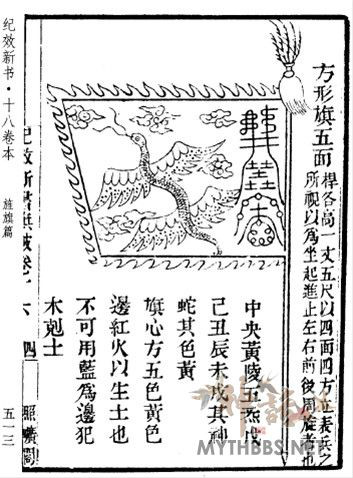 方形旗五面
桿各高一丈五尺以四面四方立表兵之
所視以為坐起進止左右前後周旋者也
中央黃陵五炁戊
己丑辰未戌其神
蛇其色黃
旗心方五色黃色
邊紅火以生土也
不可用藍為邊犯
木剋土
卷十六
四
照曠閣
纪效新书·十八卷本
旌旗篇
五一三
MYTHBBS.NET